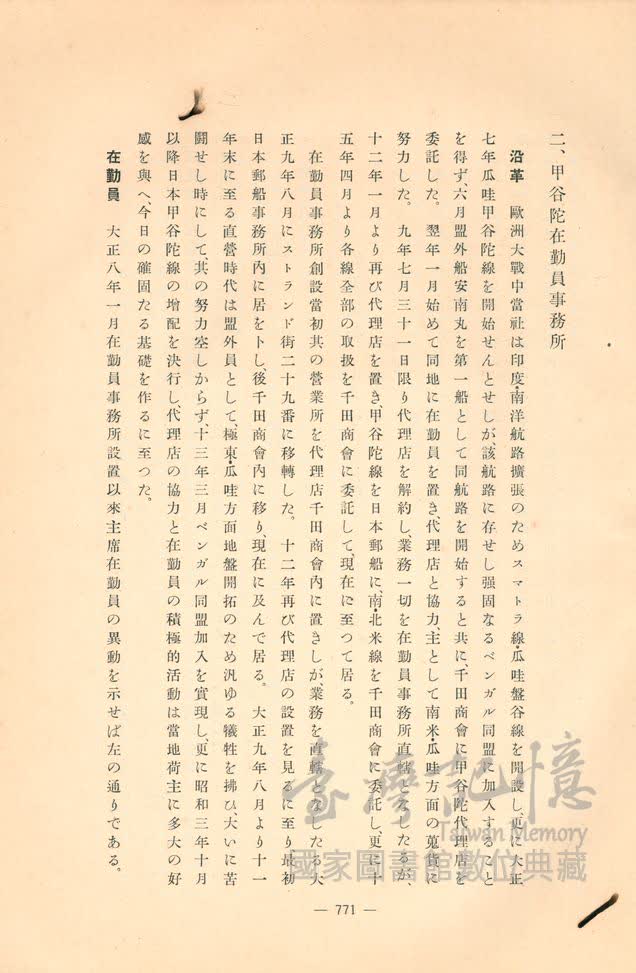 二、甲谷陀在勤員事務所
沿革　歐洲大戰中當社は印度・南洋航路擴張のためスマトラ線・瓜哇盤谷線を開設し、更に大正
七年瓜哇甲谷陀線を開始せんとせしが、該航路に存せし强固なるベンガル同盟に加入すること
を得ず、六月盟外船安南丸を第一船として同航路を開始すると共に、千田商會に甲谷陀代理店を
委託した。　翌年一月始めて同地に在勤員を置き、代理店と協力、主として南米・瓜哇方面の蒐貨に
努力した。　九年七月三十一日限り代理店を解約し、業務一切を在勤員事務所直轄となしたるが、
十二年一月より再び代理店を置き、甲谷陀線を日本郵船に、南・北米線を千田商會に委託し、更に十
五年四月より各線全部の取扱を千田商會に委託して、現在に至つて居る。
在勤員事務所創設當初其の營業所を代理店千田商會內に置きしが、業務を直轄となしたる大
正九年八月にストランド街二十九番に移轉した。　十二年再び代理店の設置を見るに至り最初
日本郵船事務所內に居を卜し、後千田商會內に移り、現在に及んで居る。　大正九年八月より十一
年末に至る直營時代は盟外員として、極東・瓜哇方面地盤開拓のため汎ゆる犠牲を拂ひ大いに苦
鬪せし時にして、其の努力空しからず、十三年三月ベンガル同盟加入を實現し、更に昭和三年十月
以降日本甲谷陀線の增配を決行し、代理店の協力と在勤員の積極的活動は當地荷主に多大の好
感を與へ、今日の確固たる基礎を作るに至つた。
在勤員　大正八年一月在勤員事務所設置以來主席在勤員の異動を示せば左の通りである。
— 771 —
臺灣記憶
Taiwan Memory
國家圖書館數位典藏